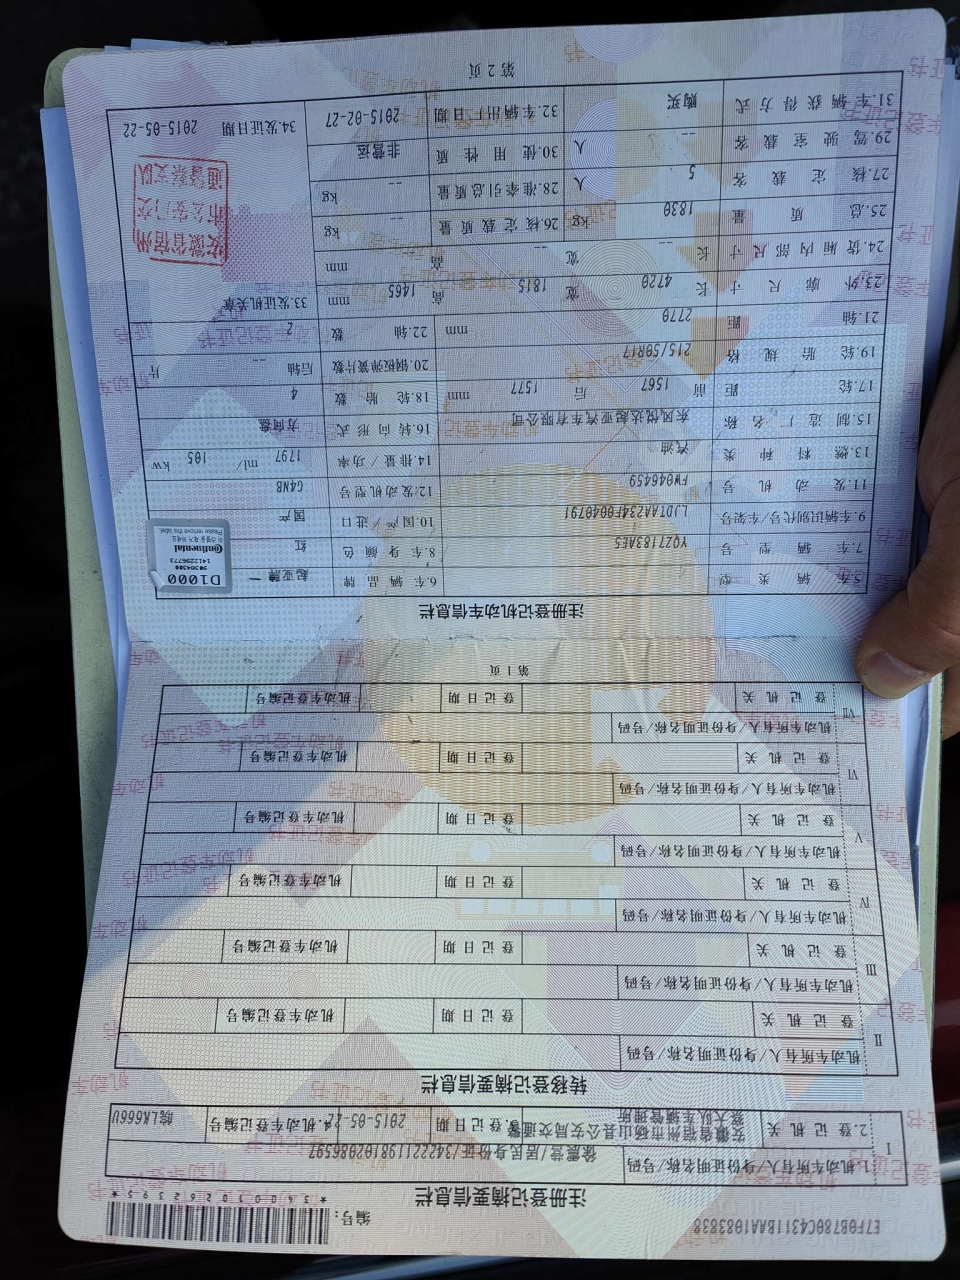 E7F0B780C4311BAA1083838
编号:
*340010262395*
注册登记摘要信息栏
I
1.机动车所有人/身份证明名称/号码 徐震营/居民身份证/342221198102086597
2.登记机关 安徽省宿州市砀山县公安局交通警察大队车辆管理所 3.登记日期 2015-05-22 4.机动车登记编号 皖LK666U
转移登记摘要信息栏
II 机动车所有人/身份证明名称/号码
登记机关 登记日期 机动车登记编号
III 机动车所有人/身份证明名称/号码
登记机关 登记日期 机动车登记编号
IV 机动车所有人/身份证明名称/号码
登记机关 登记日期 机动车登记编号
V 机动车所有人/身份证明名称/号码
登记机关 登记日期 机动车登记编号
VI 机动车所有人/身份证明名称/号码
登记机关 登记日期 机动车登记编号
VII 机动车所有人/身份证明名称/号码
登记机关 登记日期 机动车登记编号
第1页
注册登记机动车信息栏
5.车辆类型 6.车辆品牌 起亚牌
7.车辆型号 YQZ7183AE5 8.车身颜色 红
9.车辆识别代号/车架号 LJD1AA234F0040791 10.国产/进口 国产
11.发动机号 FW046459 12.发动机型号 G4NB
13.燃料种类 汽油 14.排量/功率 1797 ml/ 105 kw
15.制造厂名称 东风悦达起亚汽车有限公司 16.转向形式 方向盘
17.轮距 前 1567 后 1577 mm 18.轮胎数 4
19.轮胎规格 215/50R17 20.钢板弹簧片数 后轴 -- 片
21.轴距 2770 mm 22.轴数 2
23.外廓尺寸 长 4720 宽 1815 高 1465 mm 33.发证机关章
24.货厢内部尺寸 长 -- 宽 -- 高 mm
25.总质量 1830 kg 26.核定载质量 -- kg
27.核定载客 5 人 28.准牵引总质量 -- kg
29.驾驶室载客 -- 人 30.使用性质 非营运
31.车辆获得方式 购买 32.车辆出厂日期 2015-02-27 34.发证日期 2015-05-22
安徽省宿州
市公安局交
通警察支队
第2页
D1000
903043000
1412256773
Continental
Please remove this label.